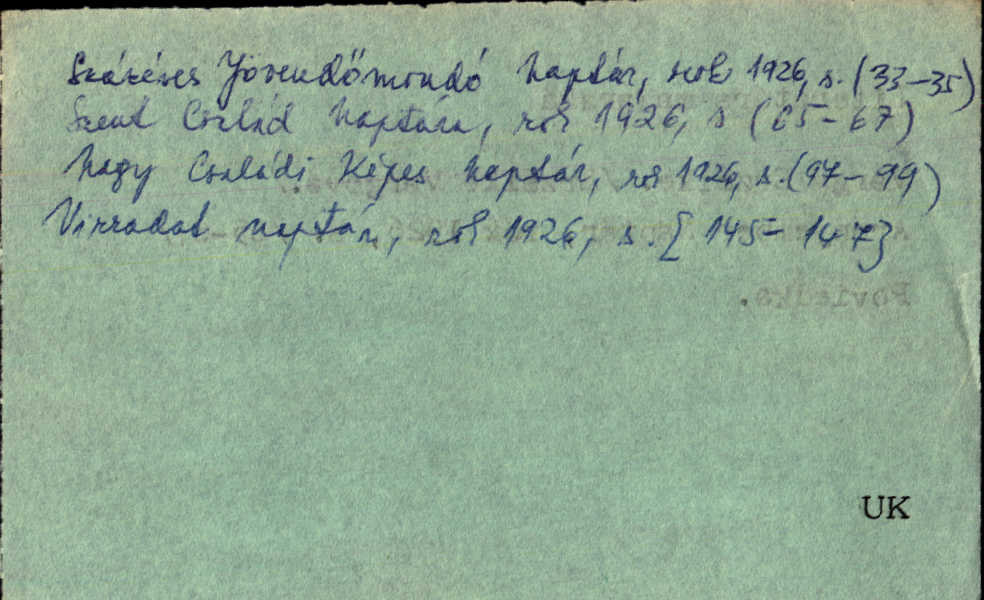 Százéves Jövendőmondó naptár, rok 1926, s. (33-35)
Szent Család Naptára, rok 1926, s (65-67)
Nagy Családi Képes Naptár, rok 1926, s. (97-99)
Virradat naptár, rok 1926, s. [145-147]
Poviedka.
UK